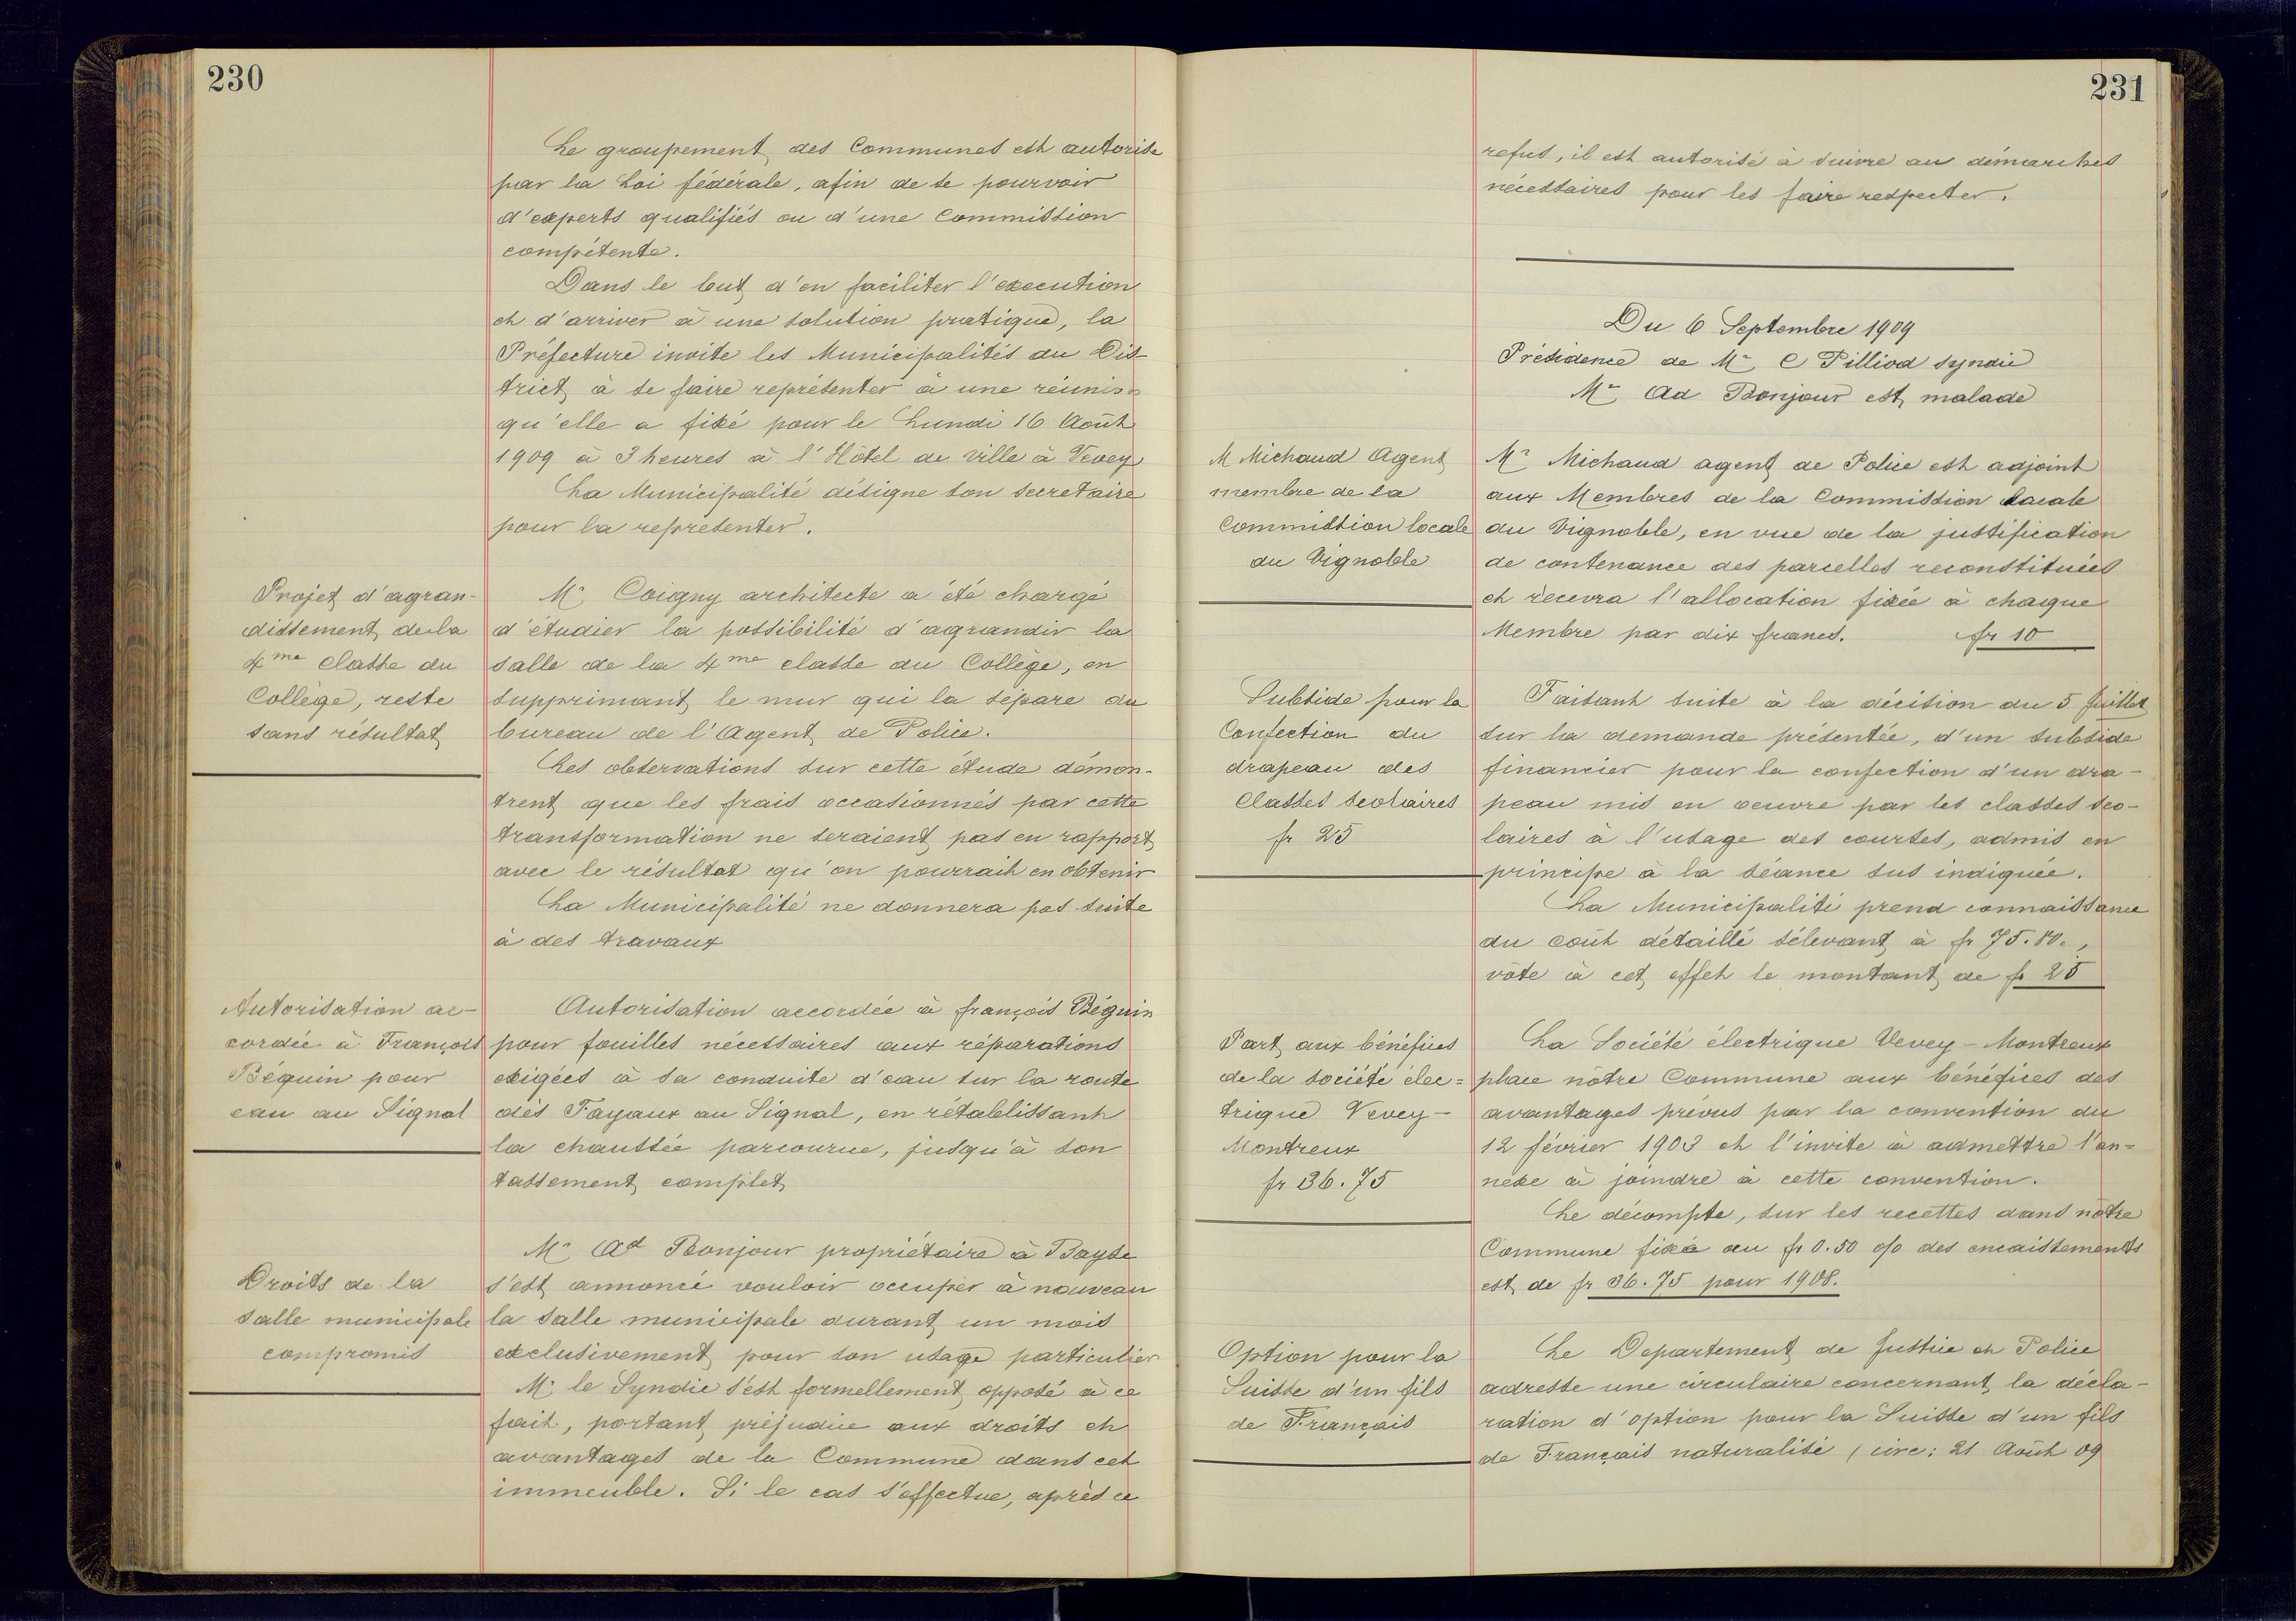 230
Le groupement des Communes est autorisé
par la Loi fédérale, afin de se pourvoir
d'experts qualifiés ou d'une Commission
compétente.
Dans le but d'en faciliter l'execution
et d'arriver à une solution pratique, la
Préfecture invite les Municipalités du Dis-
trict à se faire représenter à une réunion
qu'elle a fixé pour le Lundi 16 Août
1909 à 3 heures à l'Hôtel de Ville à Vevey
La Municipalité désigne son secretaire
pour la représenter.
Projet d'agran-
dissement de la
4me Classe du
Collège, reste
sans résultat
Mr Coigny architecte a été chargé
d'étudier la possibilité d'agrandir la
salle de la 4me classe du Collège, en
supprimant le mur qui la sépare du
bureau de l'Agent de Police.
Les observations sur cette étude démon-
trent que les frais occasionnés par cette
transformation ne seraient pas en rapport
avec le résultat qu'on pourrait en obtenir
La Municipalité ne donnera pas suite
à des travaux
Autorisation ac-
cordée à François
Béguin pour
eau au Signal
Autorisation accordée à françois Béguin
pour fouilles nécessaires aux réparations
exigées à sa conduite d'eau sur la route
dès Fayaux au Signal, en rétablissant
la chaussée parcourue, jusqu'à son
tassement complet
Droits de la
Salle municipale
compromis
Mr Ad Bonjour propriétaire à Bayse
s'est annoncé vouloir occuper à nouveau
la salle municipale durant un mois
exclusivement pour son usage particulier
Mr le Syndic s'est formellement opposé à ce
fait, portant préjudice aux droits et
avantages de la Commune dans cet
immeuble. Si le cas s'effectue, après ce
231
refus, il est autorisé à suivre au démarches
nécessaires pour les faire respecter.
Du 6 Septembre 1909
Présidence de Mr C Pilliod syndic
Mr Ad Bonjour est malade
M Michaud Agent
membre de la
Commission locale
du Vignoble
Mr Michaud agent de Police est adjoint
aux Membres de la Commission locale
du Vignoble, en vue de la justification
de contenance des parcelles reconstituées
et recevra l'allocation fixée à chaque
Membre par dix francs. fr 10
Subside pour la
Confection du
drapeau des
Classes scolaires
fr 25
Faisant suite à la décision du 5 Juillet
sur la demande présentée, d'un subside
financier pour la confection d'un dra-
peau mis en oeuvre par les classes sco-
laires à l'usage des courses, admis en
principe à la séance sus indiquée.
La Municipalité prend connaissance
du coût détaillé sélevant à fr 75.80.,
vôte à cet effet le montant de fr 25
Part aux bénéfices
de la société élec=
trique Vevey-
Montreux
fr 36.75
La Société électrique Vevey - Montreux
place nôtre Commune aux bénéfices des
avantages prévus par la convention du
12 février 1903 et l'invite à admettre l'an=
nexe à joindre à cette convention.
Le décompte, sur les recettes dans nôtre
Commune fixé au fr 0.50 o/o des encaissements
est de fr 36.75 pour 1908.
Option pour la
Suisse d'un fils
de Français
Le Departement de Justice et Police
adresse une circulaire concernant la décla-
ration d'option pour la Suisse d'un fils
de Français naturalisé (circ: 21 Août 09